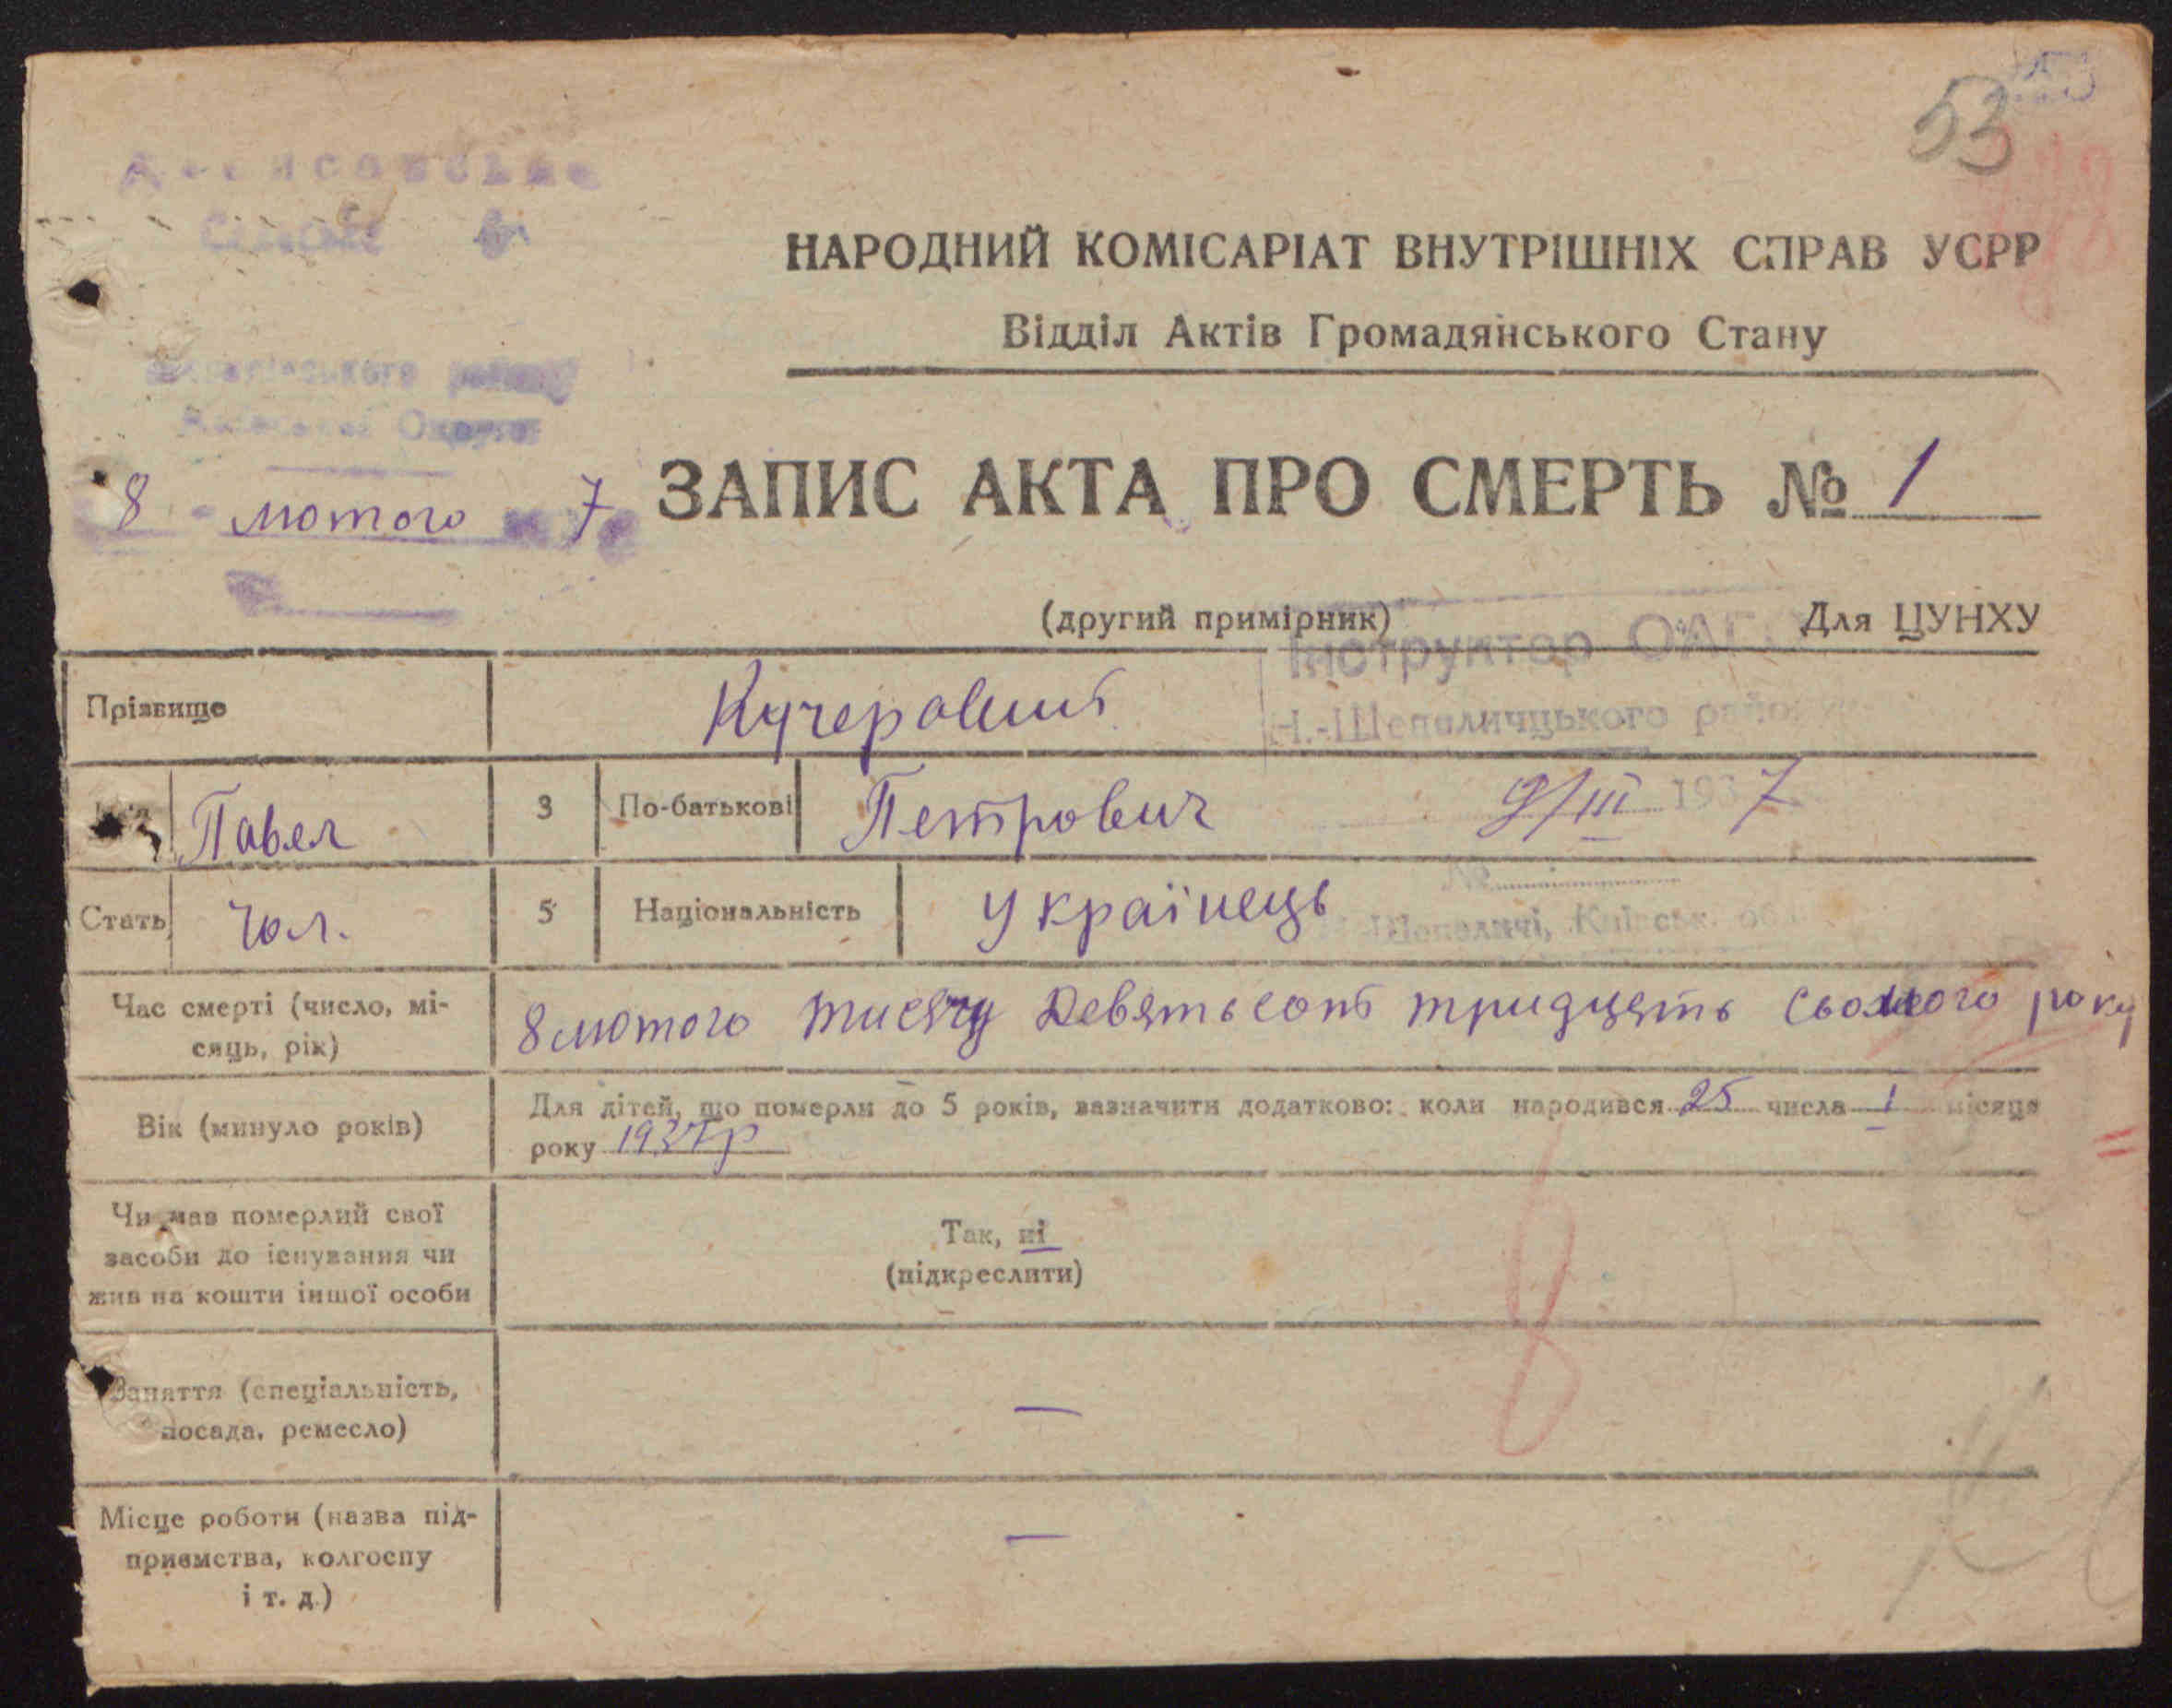 53
НАРОДНИЙ КОМІСАРІАТ ВНУТРІШНІХ СПРАВ УСРР
Відділ Актів Громадянського Стану
району
8 лютого 7
ЗАПИС АКТА ПРО СМЕРТЬ № 1
(другий примірник)
Для ЦУНХУ
Інструктор ОАГС
Н.-Шепеличцького району
Прізвище
Кучеровий
Павел
3
По-батькові
Петрович
9/III 1937
Стать
чол.
5
Національність
Українець
№
Н.-Шепеличі, Київськ. обл.
Час смерті (число, мі-
сяць, рік)
8 лютого тисячу Девятьсот тридцять сьомого року
Вік (минуло років)
Для дітей, що померли до 5 років, зазначити додатково: коли народився 25 числа I місяця
року 1937р
Чи мав померлий свої
засоби до існування чи
жив на кошти іншої особи
Так, ні
(підкреслити)
Заняття (спеціальність,
посада, ремесло)
—
Місце роботи (назва під-
приємства, колгоспу
і т. д.)
—